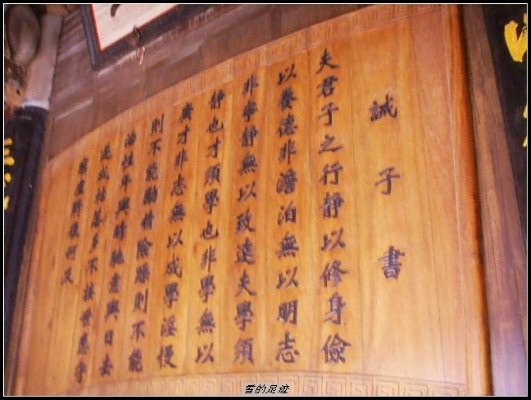 誡子書
夫君子之行靜以修身儉
以養德非澹泊無以明志
非寧靜無以致遠夫學須
靜也才須學也非學無以
廣才非志無以成學淫慢
則不能勵精險躁則不能
治性年與時馳意與日去
遂成枯落多不接世悲守
窮廬將復何及
雪的足迹